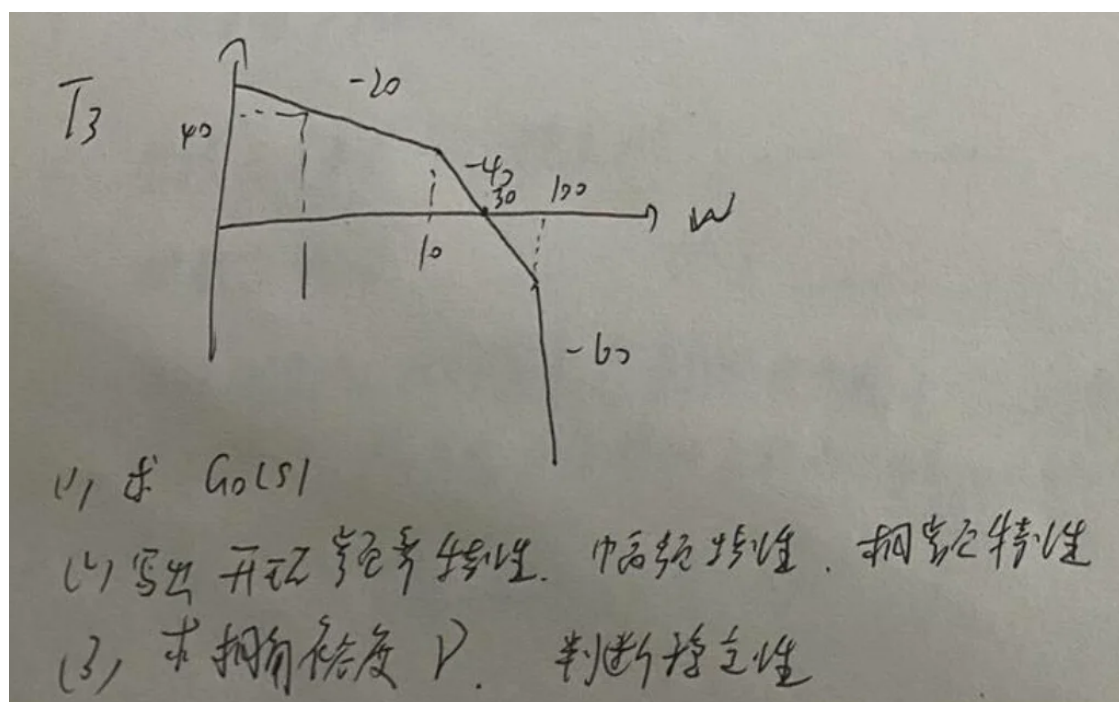 T3
-20
40
-40
30
100
W
10
-60
(1) 求 G0(s)
(2) 写出 开环频率特性. 幅频特性. 相频特性
(3) 求相角裕度 γ. 判断稳定性